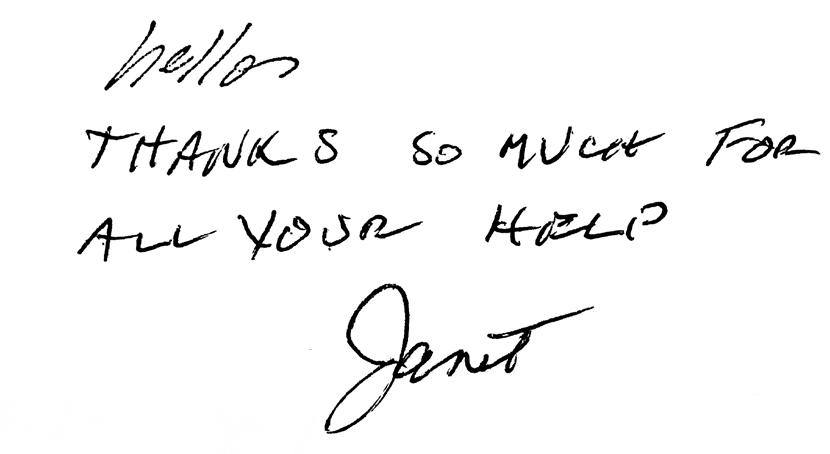 hello
THANKS SO MUCH FOR
ALL YOUR HELP
Janet